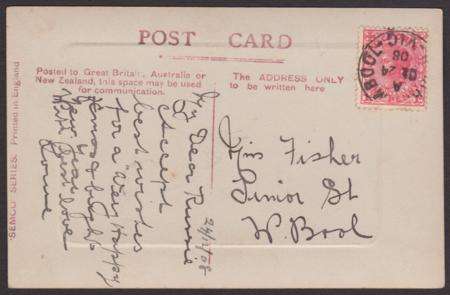 POST CARD
Posted to Great Britain, Australia or
New Zealand, this space may be used
for communication.
The ADDRESS ONLY
to be written here
"SEMCO" SERIES. Printed in England
24/12/08
My Dear
Accept
best wishes
for a Very Happy
Xmas & bright
New Year
With best love
Connie
Miss Fisher
Junior St
W. Bool